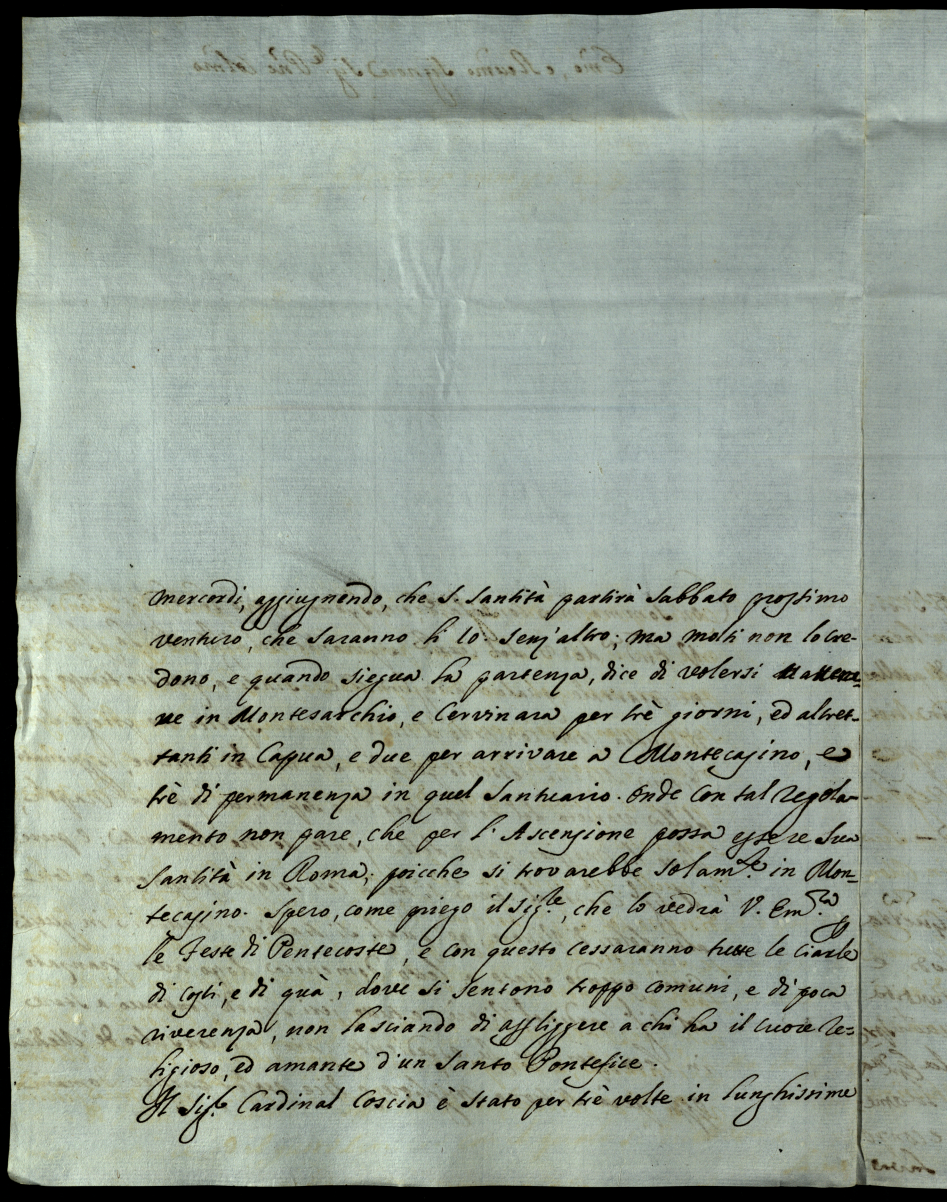 mercordi, aggiugnendo, che S. Santità partirà Sabbato prossimo
venturo, che saranno li 10. senz'altro; ma molti non lo cre-
dono, e quando siegua la partenza, dice di volersi
in Montesarchio, e Cervinara per trè giorni, ed altret-
tanti in Capua, e due per arrivare a Montecasino, e
trè di permanenza in quel Santuario. Onde con tal regola-
mento non pare, che per l'Ascenzione possa essere Sua
Santità in Roma, poicche si trovarebbe solam.te in Mon-
tecasino. Spero, come priego il Sig.re, che lo vedrà V. Em.za p
le Feste di Pentecoste, e con questo cessaranno tutte le ciarle
di costi, e di quà, dove si sentono troppo comuni, e di poca
riverenza, non lasciando di affliggere a chi ha il cuore re-
ligioso, ed amante d'un Santo Pontefice.
Il Sig.r Cardinal Coscia è stato per trè volte in lunghissime